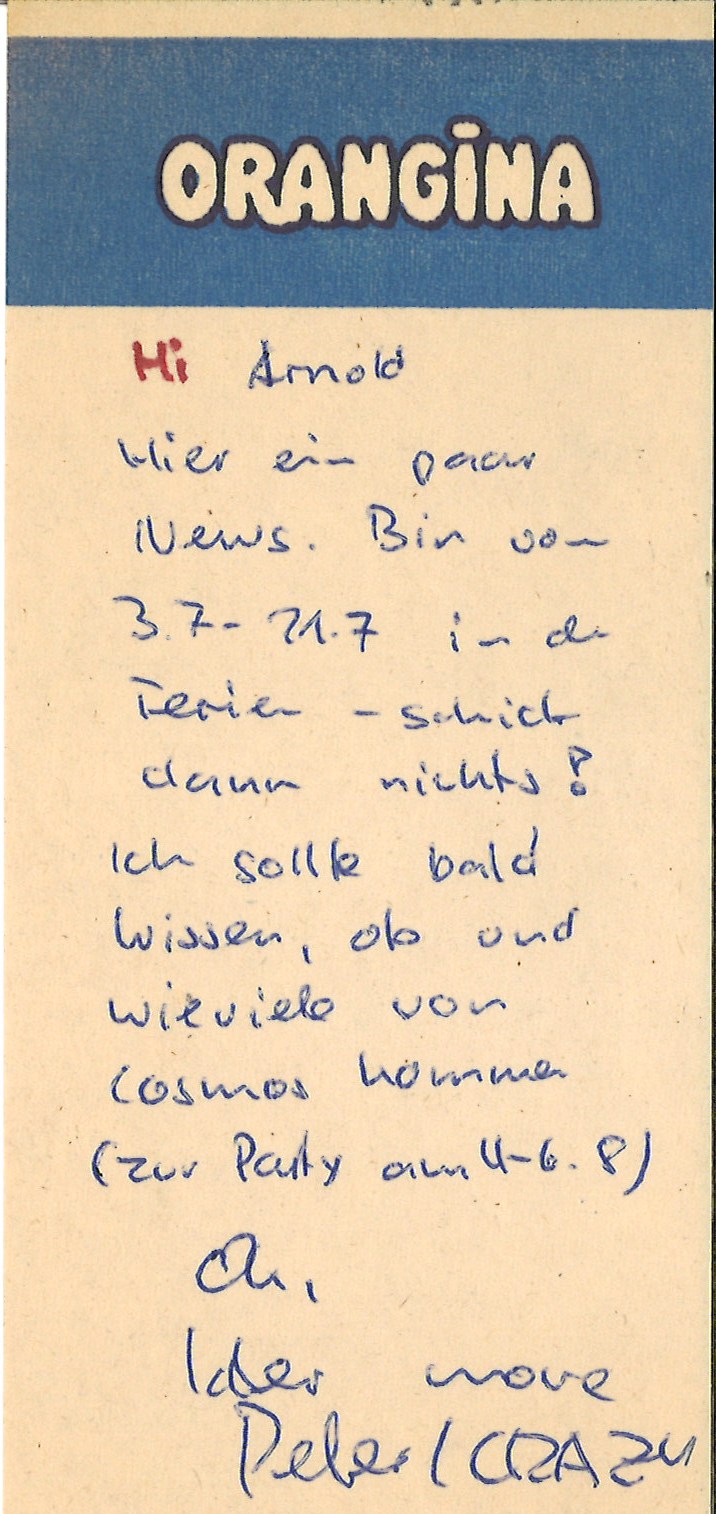 ORANGINA
Hi Arnold
Hier ein paar
News. Bin vom
3.7-21.7 in de
Ferien - schick
dann nichts!
Ich sollte bald
wissen, ob und
wieviele von
Cosmos kommen
(zur Party am 4-6.8)
Ok,
later more
Peter / CRAZY